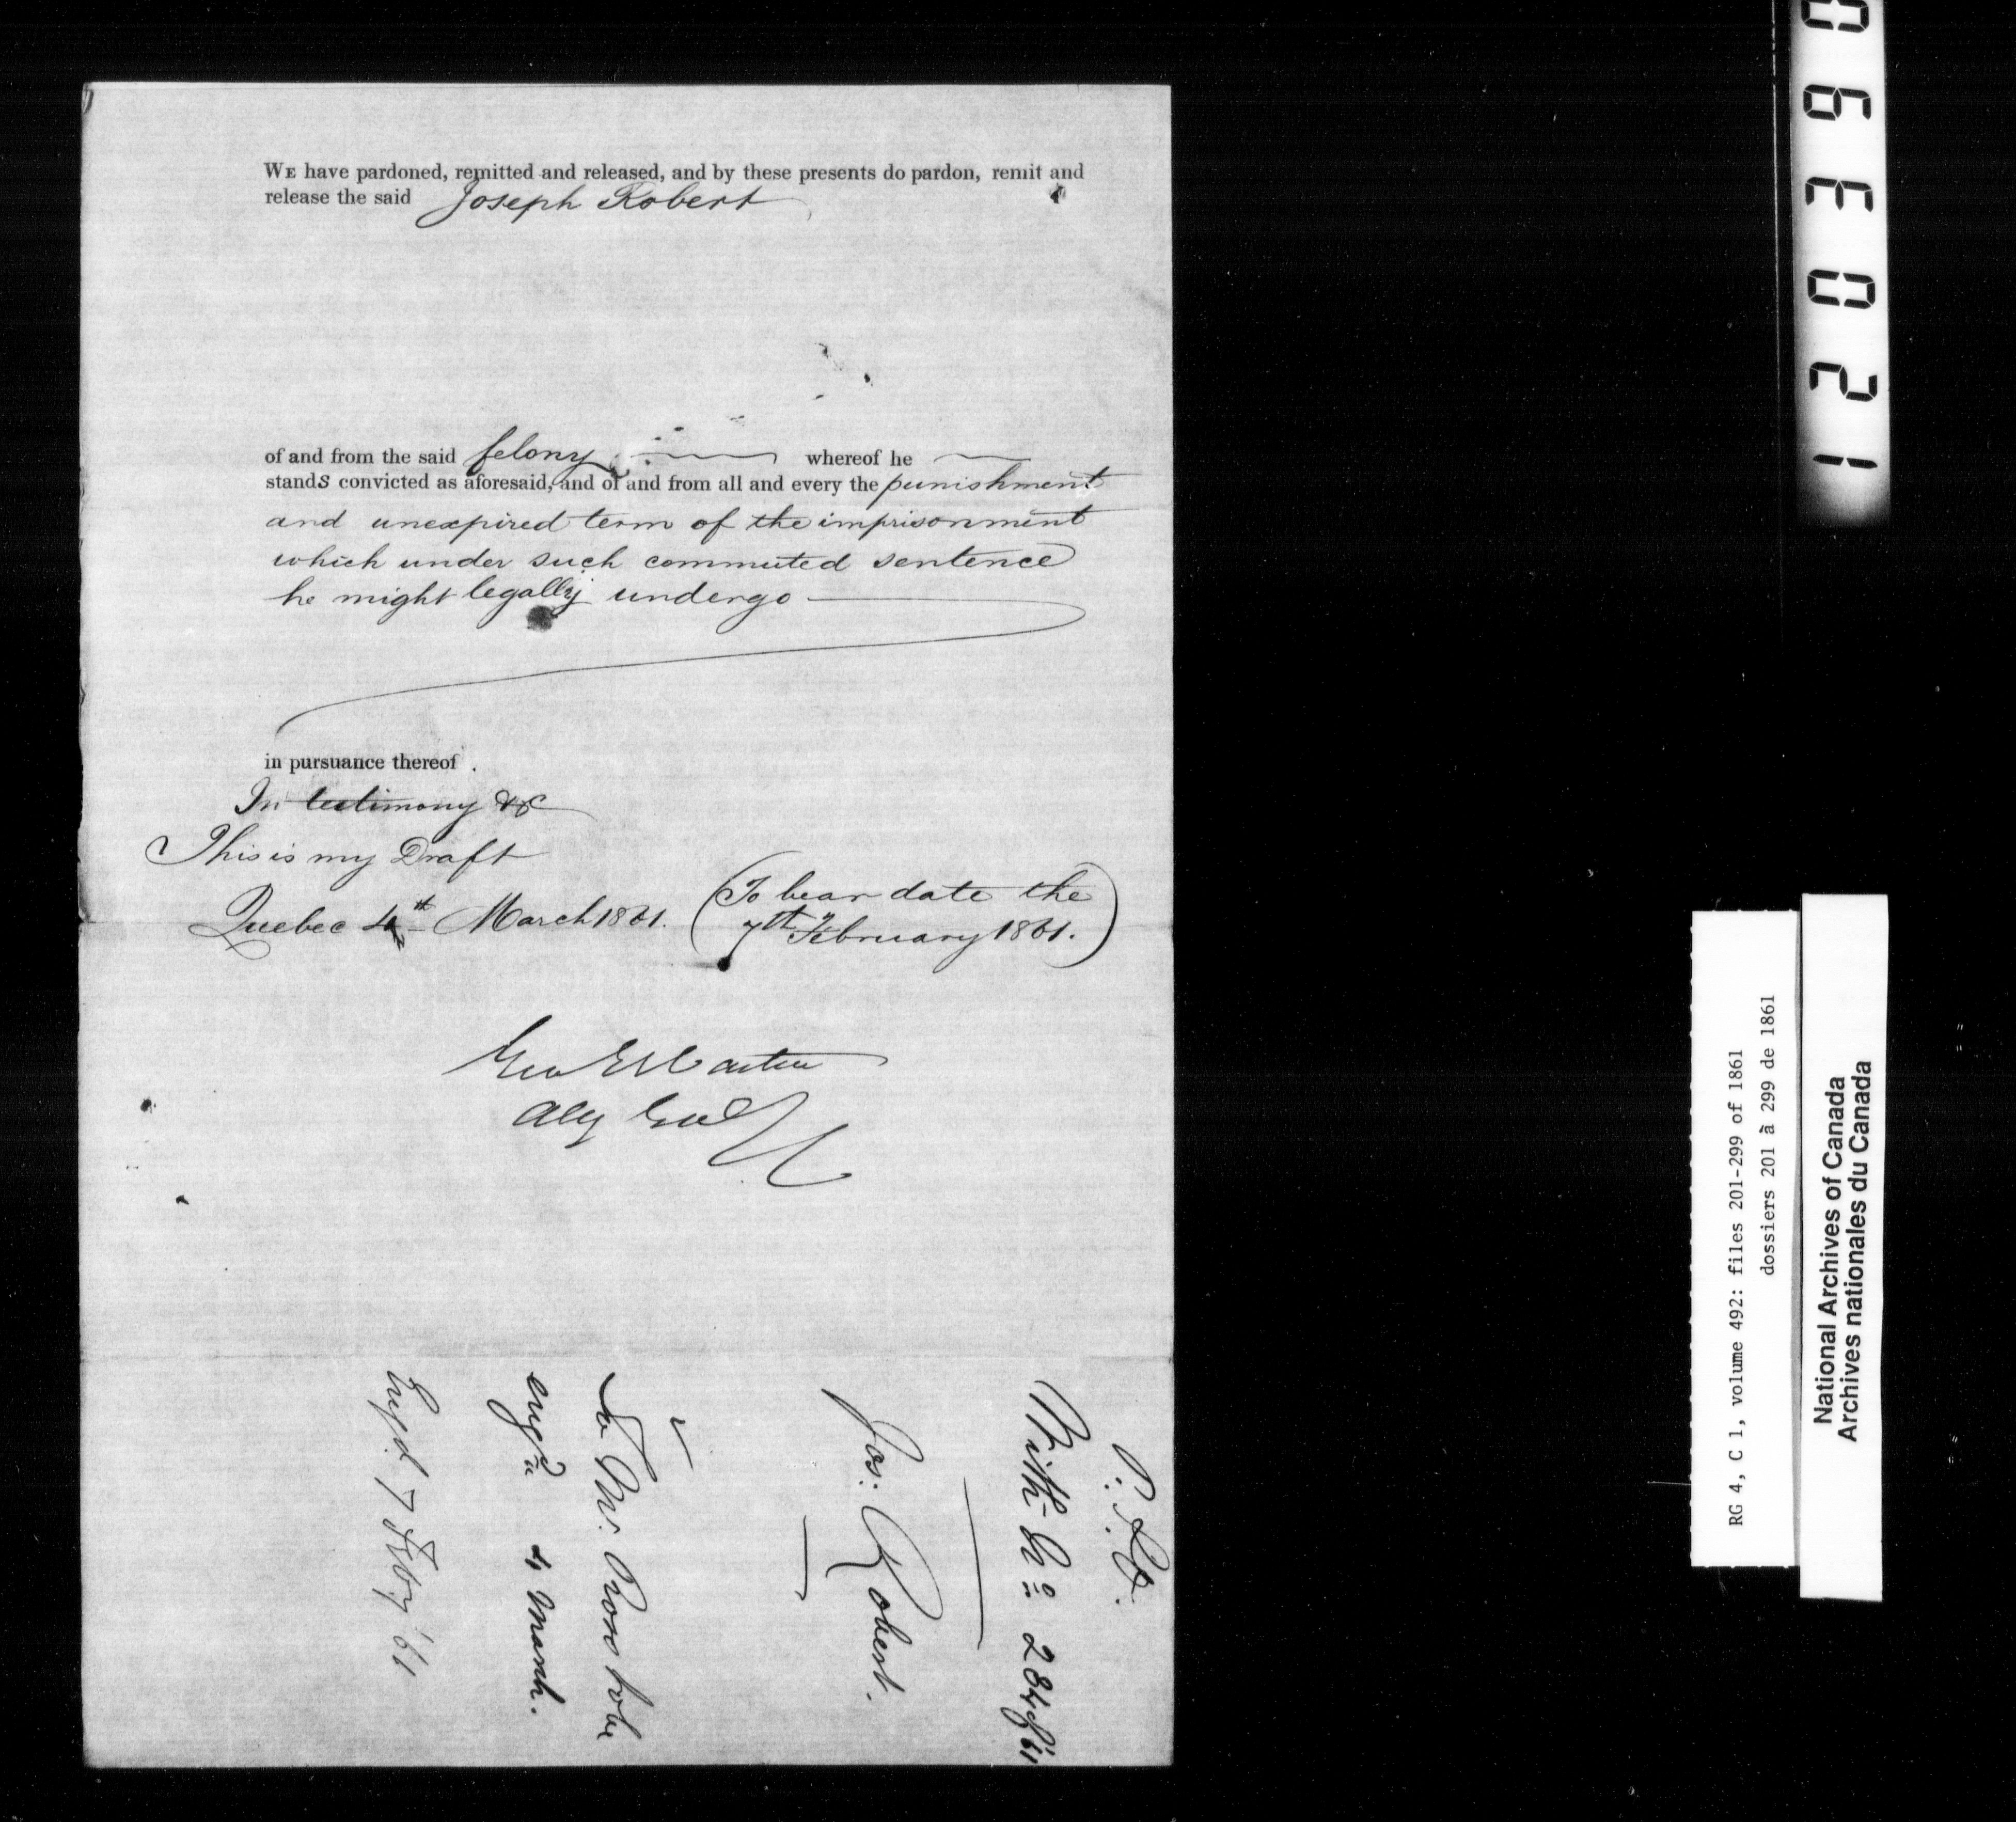 WE have pardoned, remitted and released, and by these presents do pardon, remit and
release the said Joseph Robert
of and from the said felony whereof he
stands convicted as aforesaid, and of and from all and every the punishment
and unexpired term of the imprisonment
which under such commuted sentence
he might legally undergo
in pursuance thereof.
In testimony &c
This is my Draft
Quebec 4th March 1861. (To bear date the
7th February 1861.)
Geo E Cartier
Atty Genl
With No. 284 of '61
Jos: Robert.
engd 4 March.
7 Feby '61
120360
RG 4, C 1, volume 492: files 201-299 of 1861
dossiers 201 à 299 de 1861
National Archives of Canada
Archives nationales du Canada